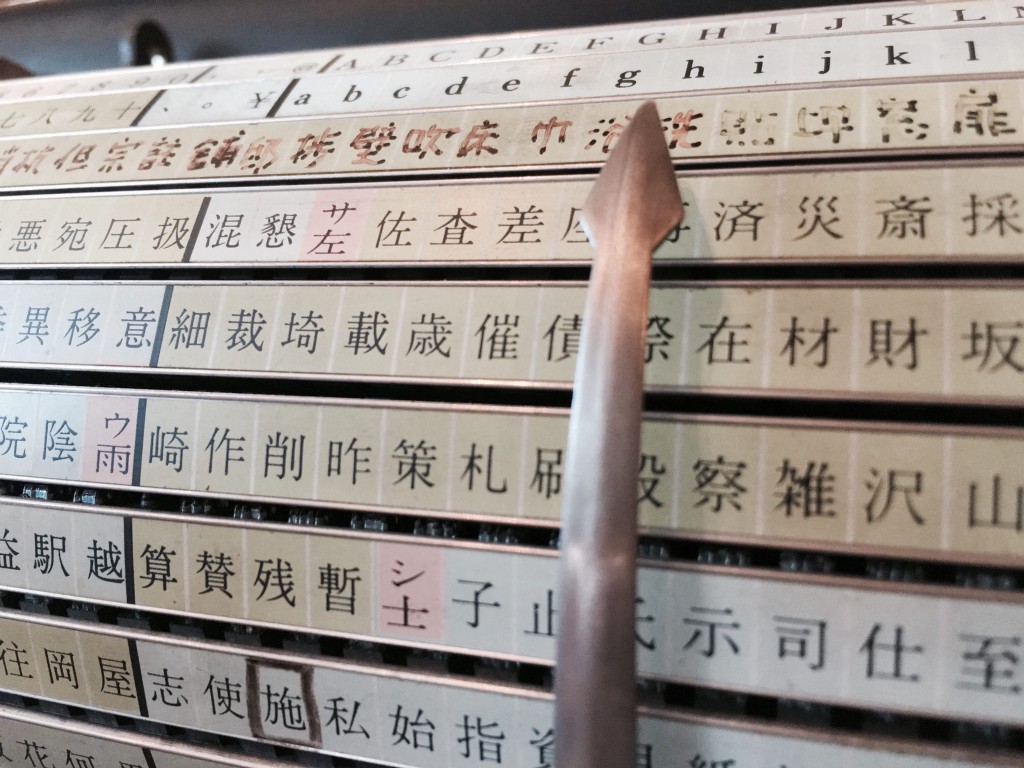 6 7 8 9 0 , . @ A B C D E F G H I J K L
七 八 九 十 、 。 ¥ a b c d e f g h i j k l
但 宗 註 舗 邸 壁 吹 床 巾
悪 宛 圧 扱 混 懇 サ左 佐 査 差 済 災 斎 採
異 移 意 細 裁 埼 載 歳 催 債 祭 在 材 財 坂
院 陰 ウ雨 崎 作 削 昨 策 札 刷 殺 察 雑 沢 山
益 駅 越 算 賛 残 暫 シ士 子 止 氏 示 司 仕 至
往 岡 屋 志 使 施 私 始 指 資
花 何